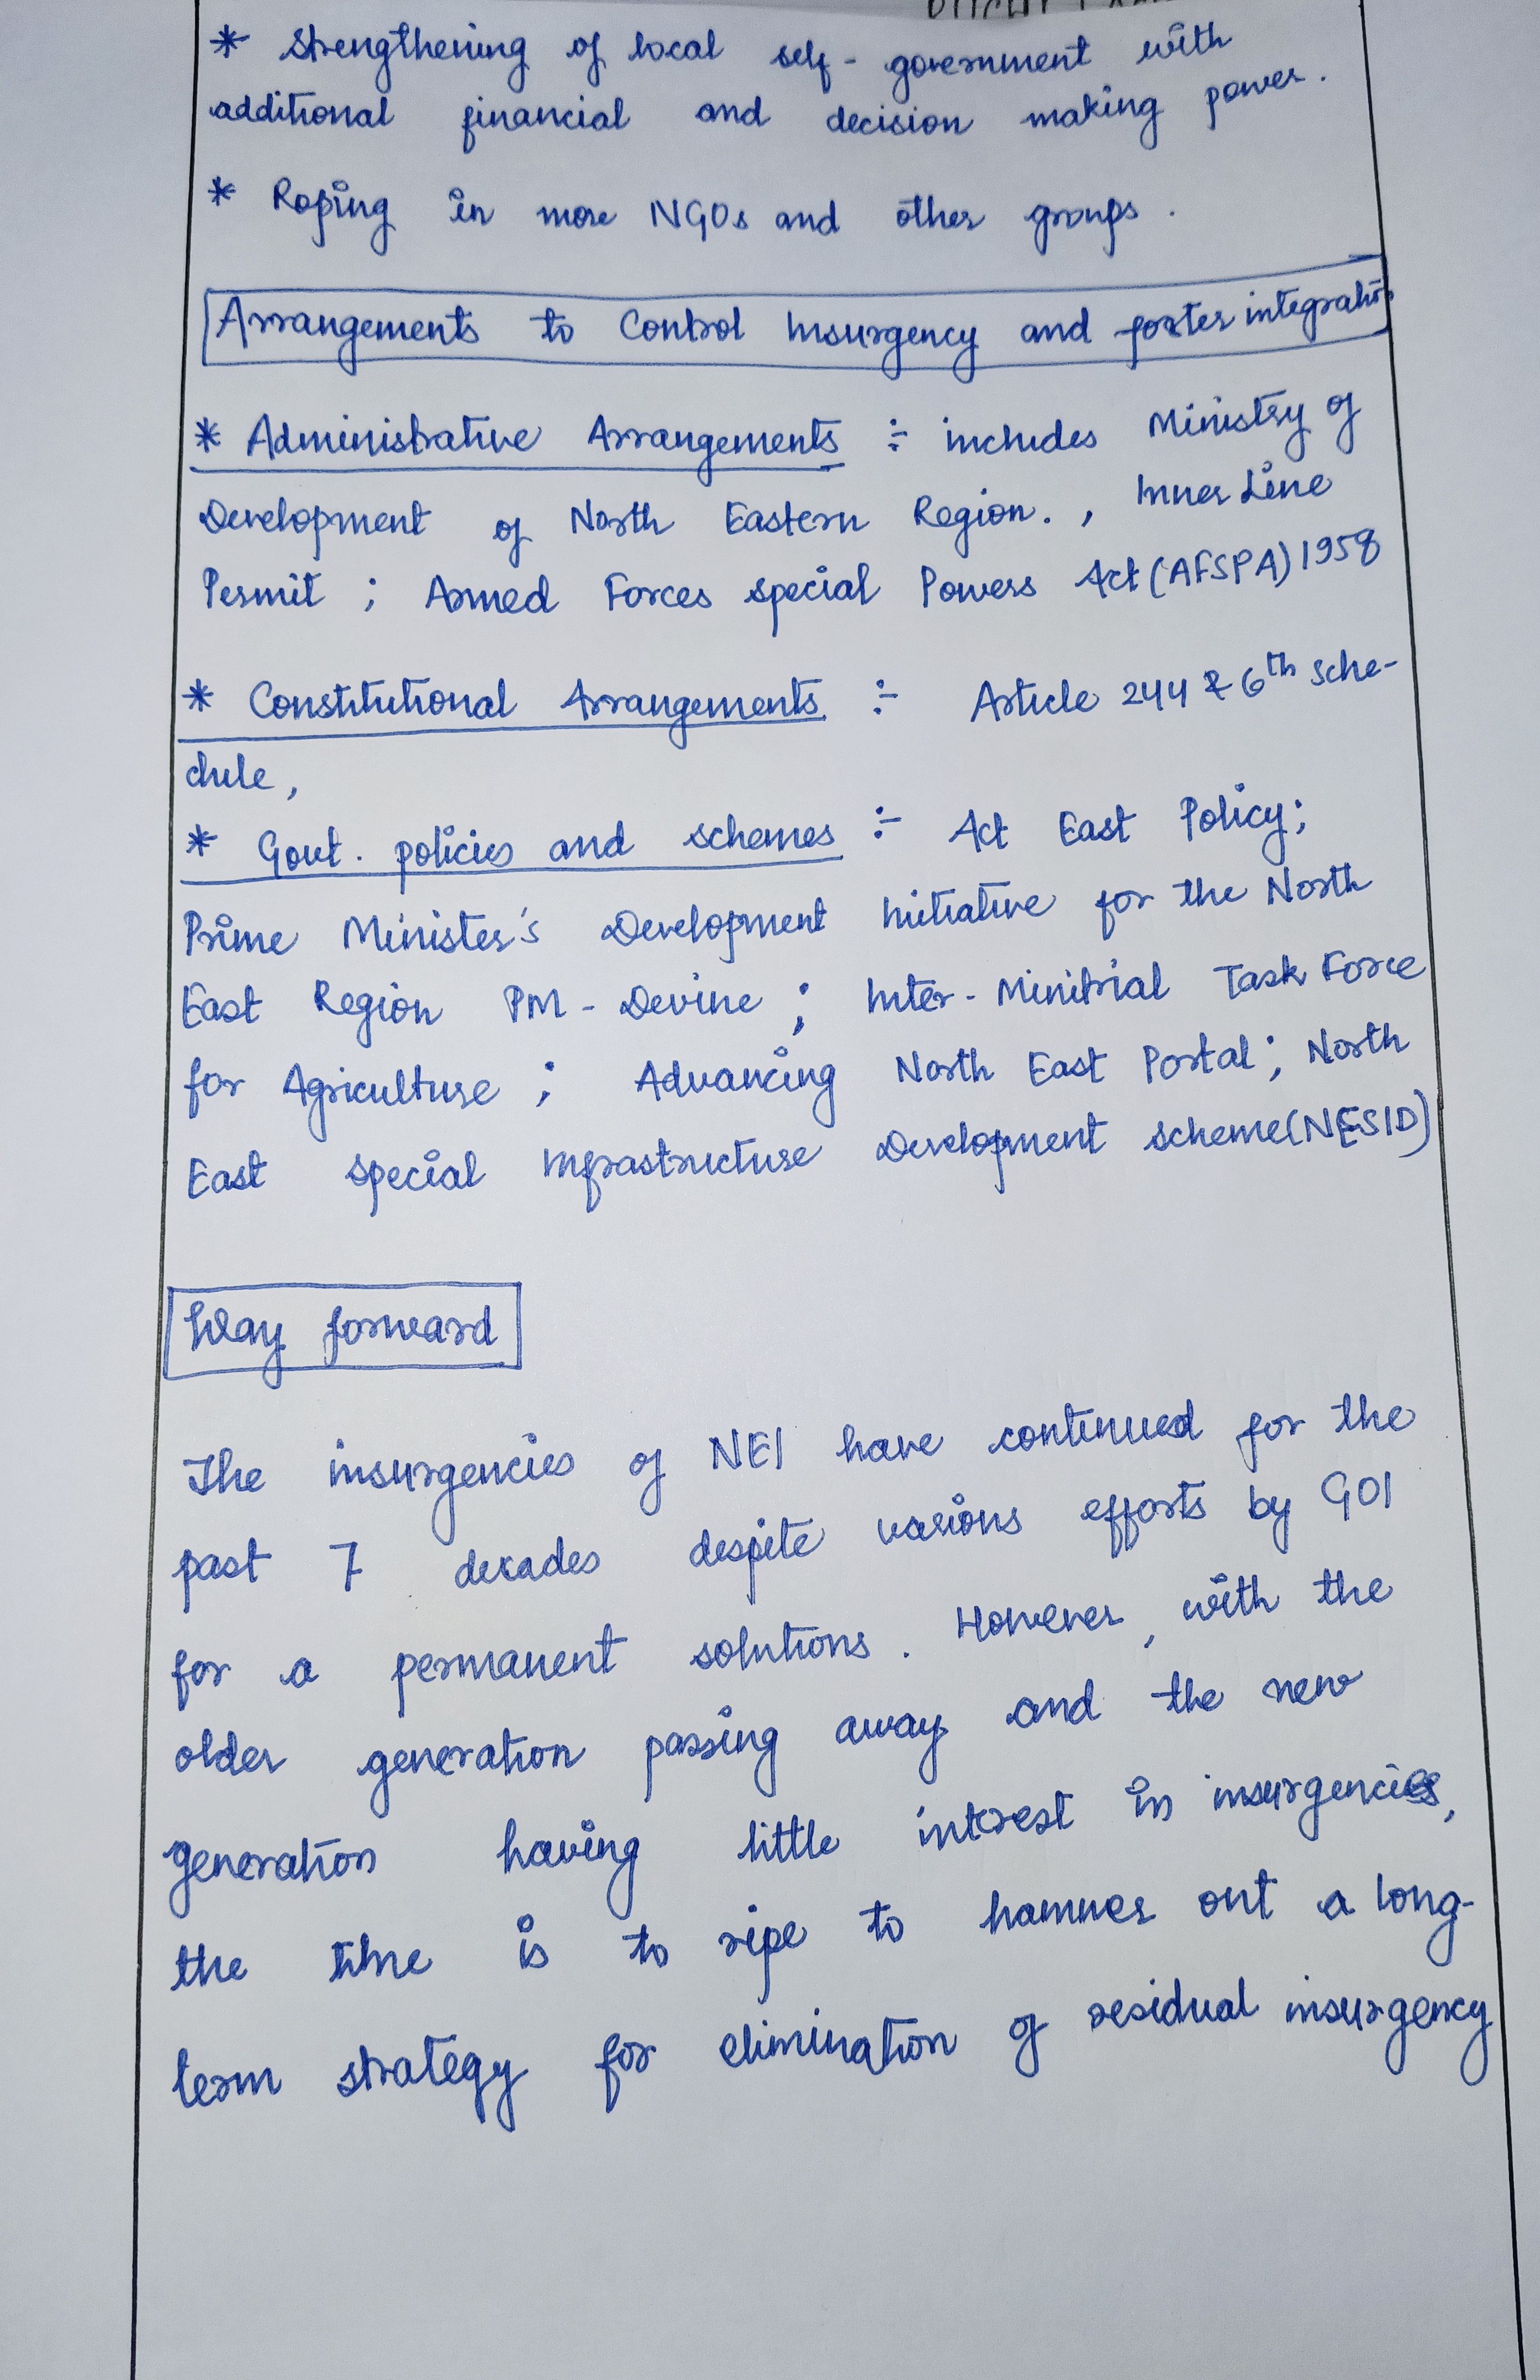 * Strengthening of local self-government with
additional financial and decision making power.
* Roping in more NGOs and other groups.
Arrangements to Control Insurgency and foster integration
* Administrative Arrangements :- includes Ministry of
Development of North Eastern Region. , Inner Line
Permit ; Armed Forces special Powers Act (AFSPA) 1958
* Constitutional Arrangements :- Article 244 & 6th Sche-
dule,
* Govt. policies and schemes :- Act East Policy;
Prime Minister's Development Initiative for the North
East Region PM-Devine ; Inter-Minitrial Task Force
for Agriculture ; Advancing North East Portal ; North
East special Infrastructure Development scheme (NESID)
Way forward
The insurgencies of NEI have continued for the
past 7 decades despite various efforts by GOI
for a permanent solutions. However, with the
older generation passing away and the new
generation having little interest in insurgencies,
the time is to ripe to hammer out a long-
term strategy for elimination of residual insurgency